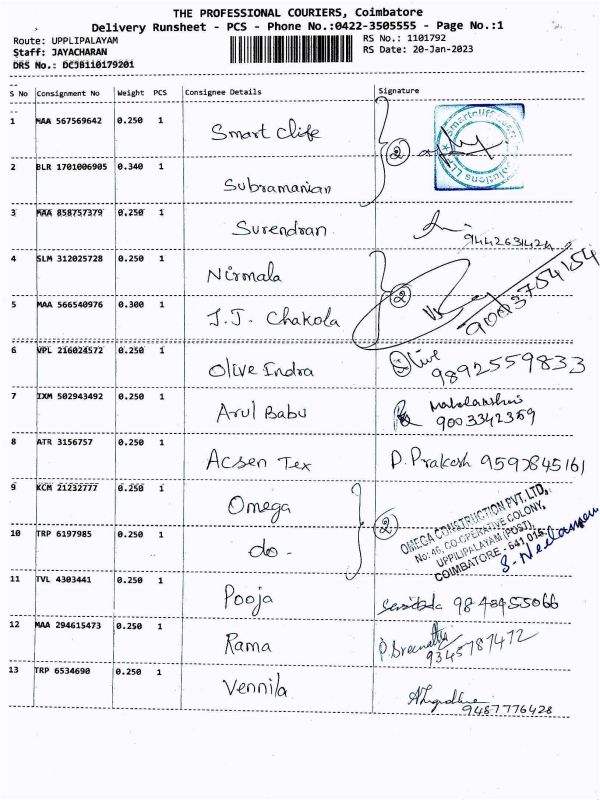 THE PROFESSIONAL COURIERS, Coimbatore
Delivery Runsheet - PCS - Phone No.:0422-3505555 - Page No.:1
Route: UPPLIPALAYAM RS No.: 1101792
Staff: JAYACHARAN RS Date: 20-Jan-2023
DRS No.: DCJB110179201
S No Consignment No Weight PCS Consignee Details Signature
1 MAA 567569642 0.250 1 Smart Clife 2
2 BLR 1701006905 0.340 1 Subramanian
3 MAA 858757379 0.250 1 Surendran 9442631424
4 SLM 312025728 0.250 1 Nirmala 2 9003754154
5 MAA 566540976 0.300 1 J.J. Chakola
6 VPL 216024572 0.250 1 Olive Indra Olive 9892559833
7 IXM 502943492 0.250 1 Arul Babu 9003342359
8 ATR 3156757 0.250 1 Acsen Tex D. Prakash 9597845161
9 KCM 21232777 0.250 1 Omega 2
OMEGA CONSTRUCTION PVT. LTD,
No: 46, CO-OPERATIVE COLONY,
UPPILIPALAYAM (POST),
COIMBATORE - 641 015.
10 TRP 6197985 0.250 1 do -
11 TVL 4303441 0.250 1 Pooja
12 MAA 294615473 0.250 1 Rama 9345787472
13 TRP 6534690 0.250 1 Vennila 9487776428